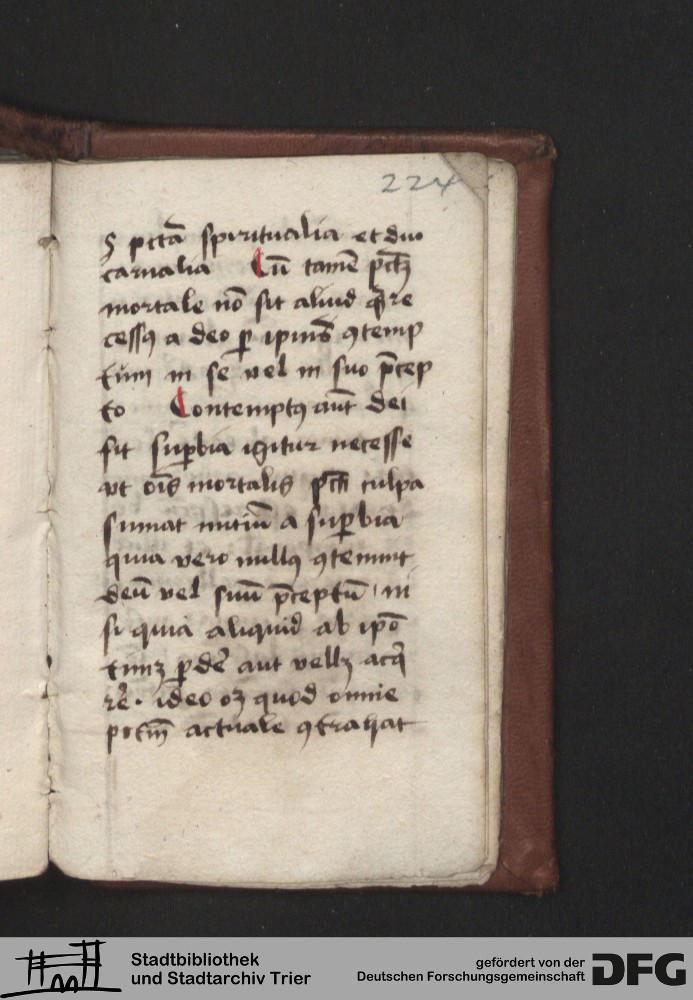 224
5 pctā spiritualia et duo
carnalia Cū tamē pctm̄
mortale nō sit aliud q̄ re
cessꝯ a deo ꝑ ipiuſ ꝯtemp
tum in se vel in suo p̄cep
to Contemptꝯ aūt dei
fit suꝑbia igitur necesse
vt oīs mortalis pcti culpa
sumat initiū a suꝑbia
quia vero nullꝯ ꝯtemnit
deū vel suū p̄ceptū ni
si quia aliquid ab ipō
timꝫ ꝑdē aut vellꝫ acq̄
rē. ideo oꝫ quod omne
pctm̄ actuale ꝯtrahat
Stadtbibliothek
und Stadtarchiv Trier
gefördert von der
Deutschen Forschungsgemeinschaft
DFG